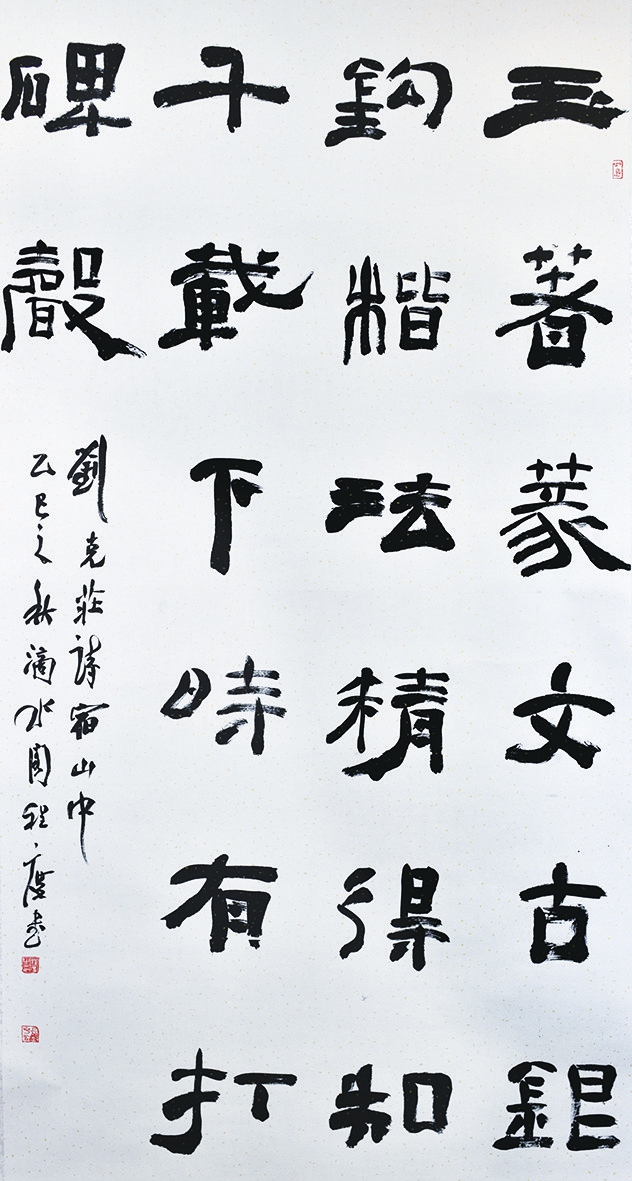 玉著篆文古銀
鈎楷法精得知
千載下時有打
碑聲
劉克莊詩宿山中
乙巳之秋滴水程書